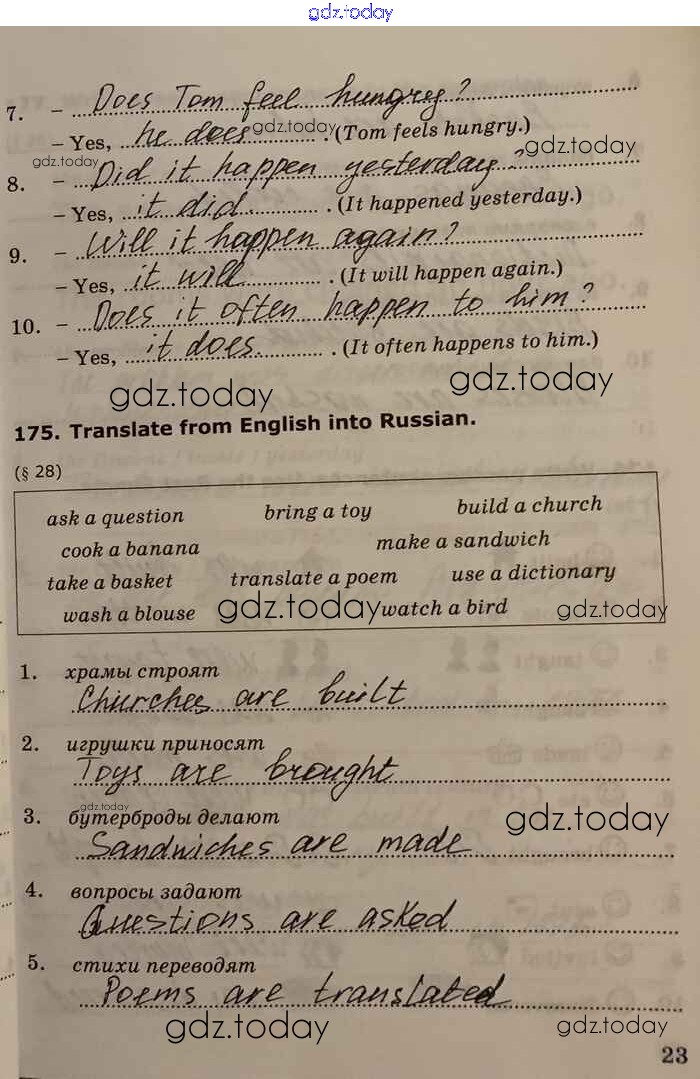 gdz.today
7. – Does Tom feel hungry?
– Yes, he does gdz.today. (Tom feels hungry.)
gdz.today gdz.today
8. – Did it happen yesterday?
– Yes, it did. (It happened yesterday.)
9. – Will it happen again?
– Yes, it will. (It will happen again.)
10. – Does it often happen to him?
– Yes, it does. (It often happens to him.)
gdz.today gdz.today
175. Translate from English into Russian.
(§ 28)
ask a question bring a toy build a church
cook a banana make a sandwich
take a basket translate a poem use a dictionary
wash a blouse gdz.today watch a bird gdz.today
1. храмы строят
Churches are built
2. игрушки приносят
Toys are brought
gdz.today
3. бутерброды делают gdz.today
Sandwiches are made
4. вопросы задают
Questions are asked
5. стихи переводят
Poems are translated
gdz.today gdz.today
23